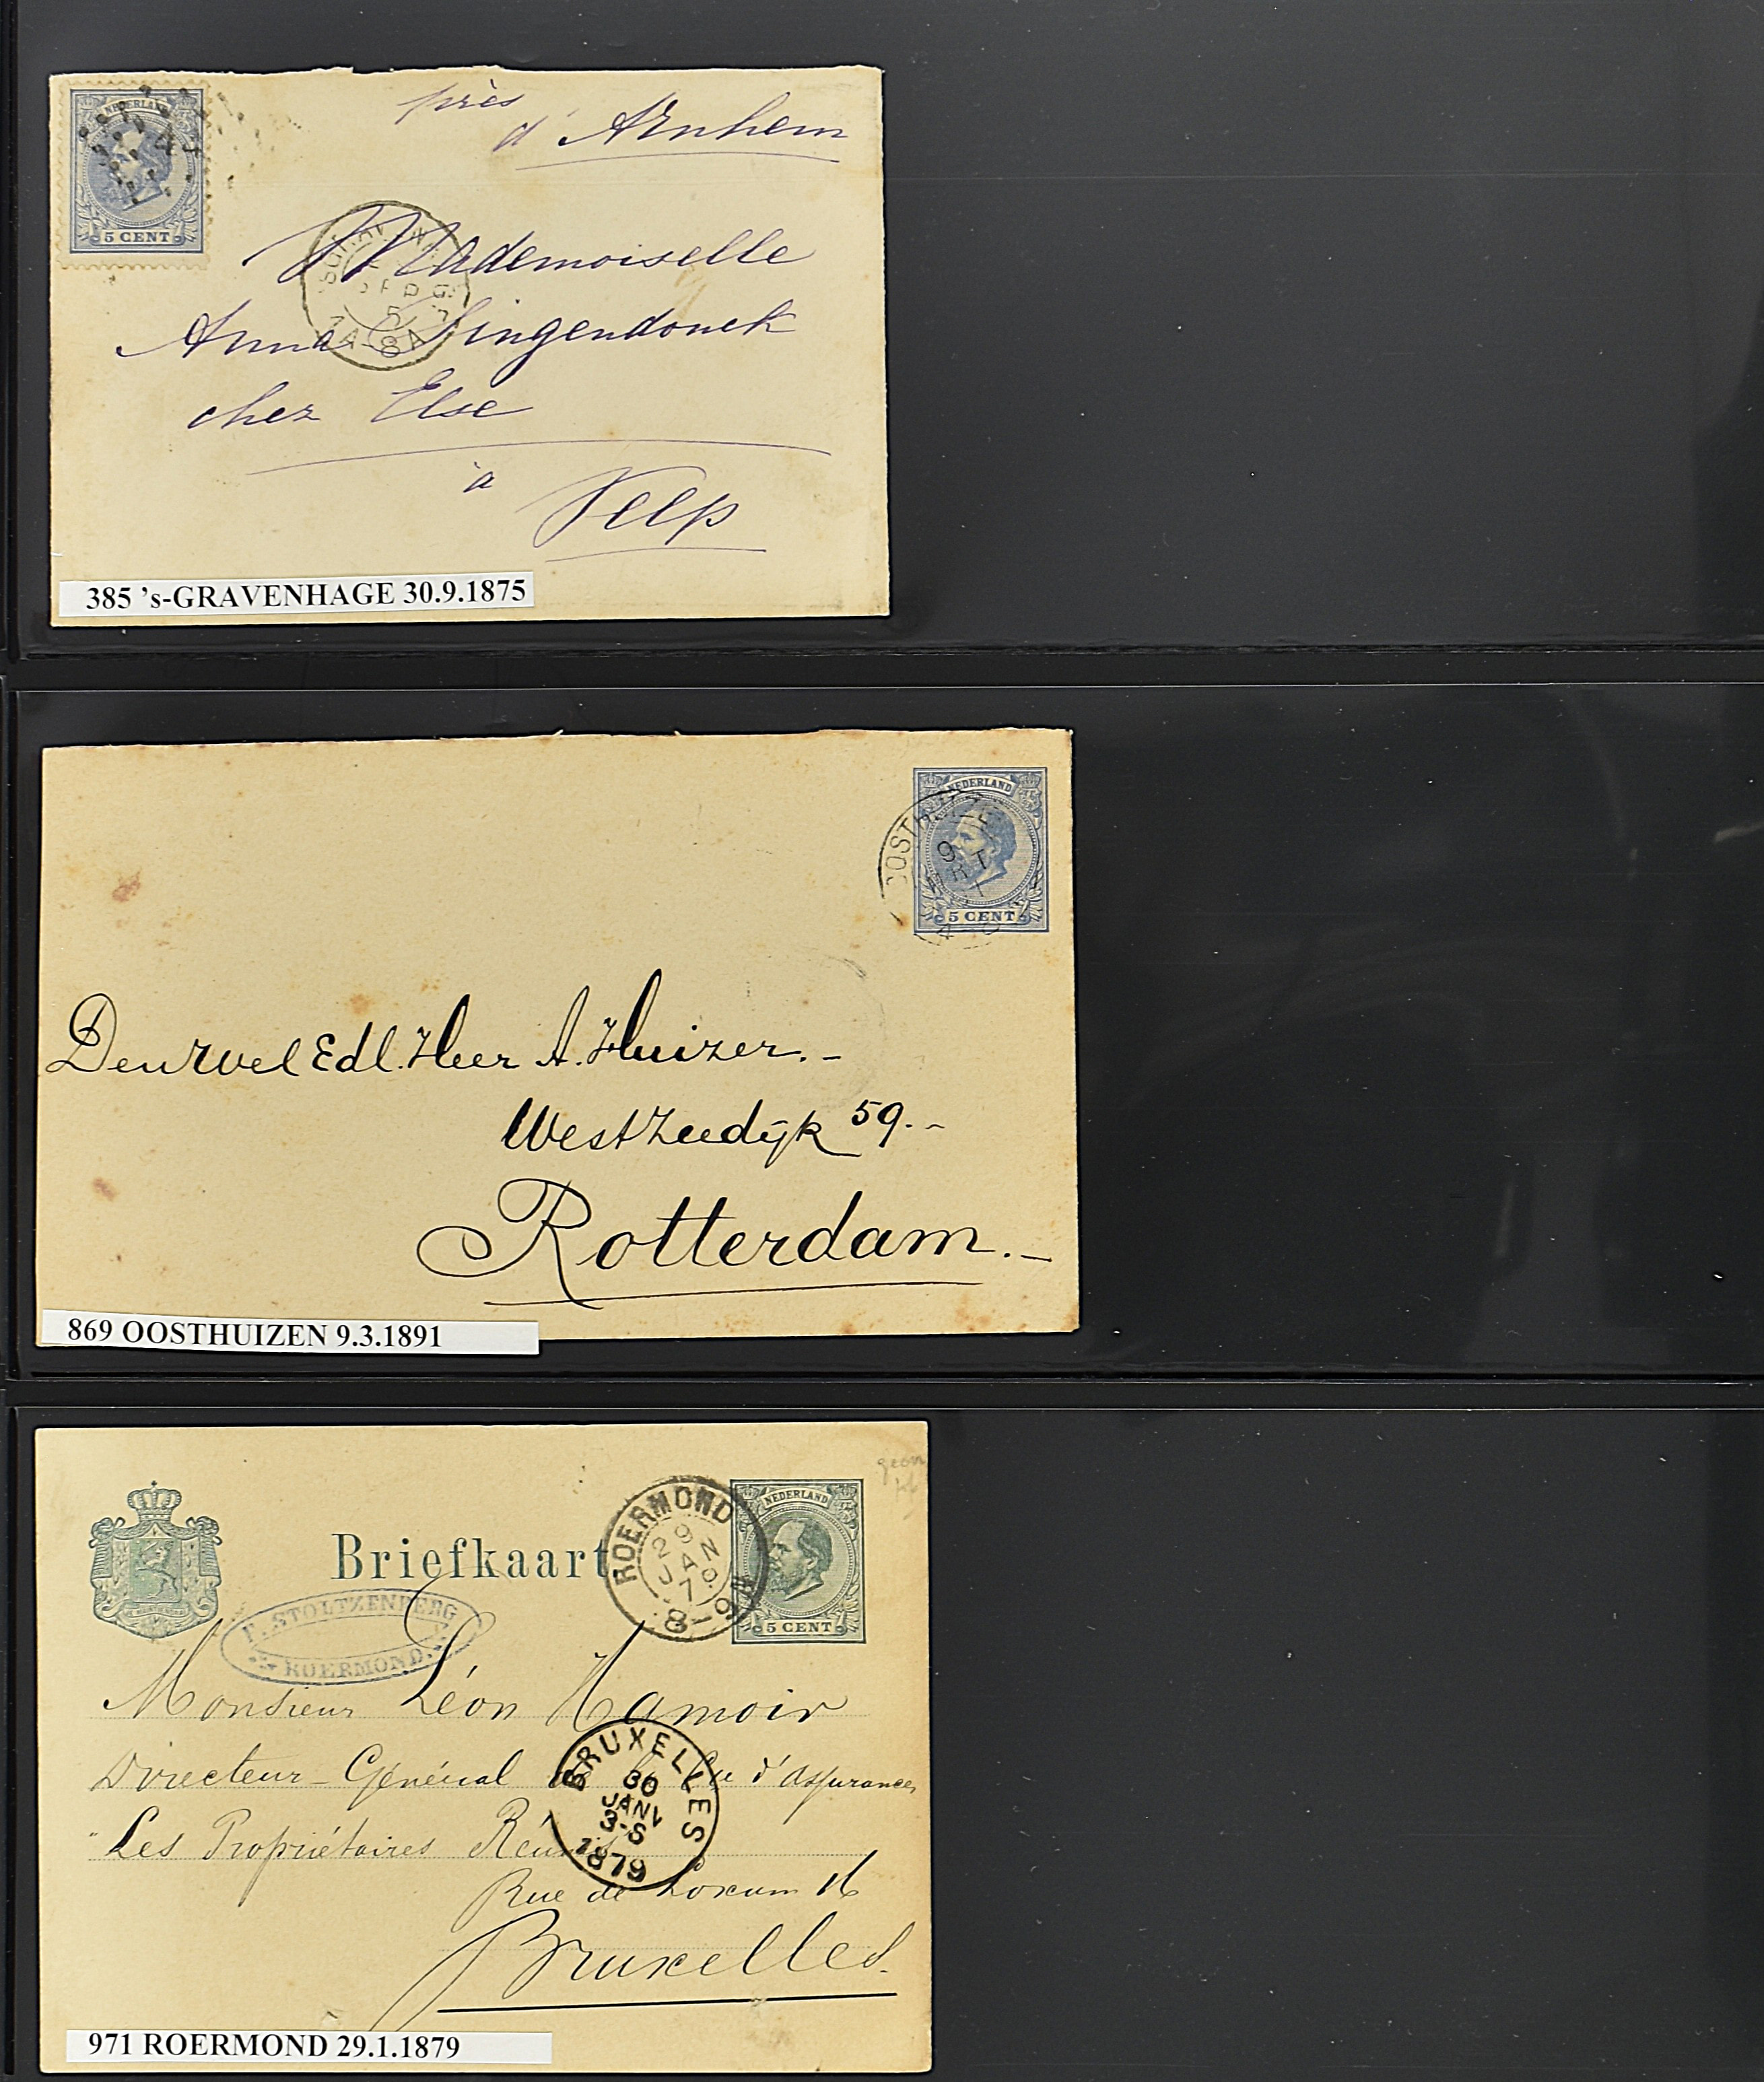 NEDERLAND
5 CENT
près
d'Arnhem
Mademoiselle
Anna Singendonck
chez Else
à
Velp
385 's-GRAVENHAGE 30.9.1875
NEDERLAND
OOSTHUIZE
9
MRT
5 CENT
Den Wel Edl. Heer A. Huizer.-
Westzeedyk 59.-
Rotterdam.-
869 OOSTHUIZEN 9.3.1891
NEDERLAND
5 CENT
Briefkaart
ROERMOND
29
JAN
79
8-9N
F. STOLTZENBERG
ROERMOND.
Monsieur Léon Hamoir
Directeur-Général de la Cie d'Assurances
"Les Propriétaires Réunis
BRUXELLES
30
JANV
3-S
1879
Rue de Loxum 16
Bruxelles.
971 ROERMOND 29.1.1879